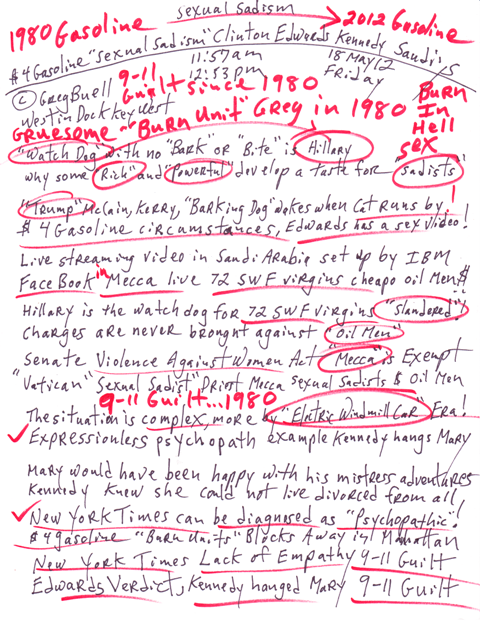 sexual sadism
1980 Gasoline → 2012 Gasoline
$4 Gasoline "sexual sadism" Clinton Edwards Kennedy Saudi's
11:57am
12:53pm
18 May 12
Friday
© Greg Buell
West in Dock Key West
9-11
Guilt since 1980
Gruesome "Burn Unit" Greg in 1980
Burn
In
Hell
sex
"Watch Dog" with no "Bark" or "Bite" is Hillary
why some "Rich" and "Powerful" develop a taste for "sadists"
"Trump" McLain, Kerry, "Barking Dog" wakes when Cat runs by!
$4 Gasoline circumstances, Edwards has a sex video!
Live streaming video in Saudi Arabia set up by IBM
FaceBook in Mecca live 72 SWF virgins cheapo oil Men $
Hillary is the watch dog for 72 SWF virgins "slandered"!
Charges are never brought against "Oil Men"
Senate Violence Against Women Act "Mecca" is Exempt
"Vatican" Sexual Sadist Priot Mecca Sexual Sadists $ Oil Men
9-11 Guilt...1980
The situation is complex, more by "Electric Windmill Car" Era!
✓ Expressionless psychopath example Kennedy hangs Mary
Mary would have been happy with his mistress adventures
Kennedy knew she could not live divorced from all!
✓ New York Times can be diagnosed as "Psychopathic"!
$4 gasoline "Burn Units" Blocks Away in Manhattan
New York Times Lack of Empathy 9-11 Guilt
Edwards Verdict, Kennedy hanged Mary 9-11 Guilt